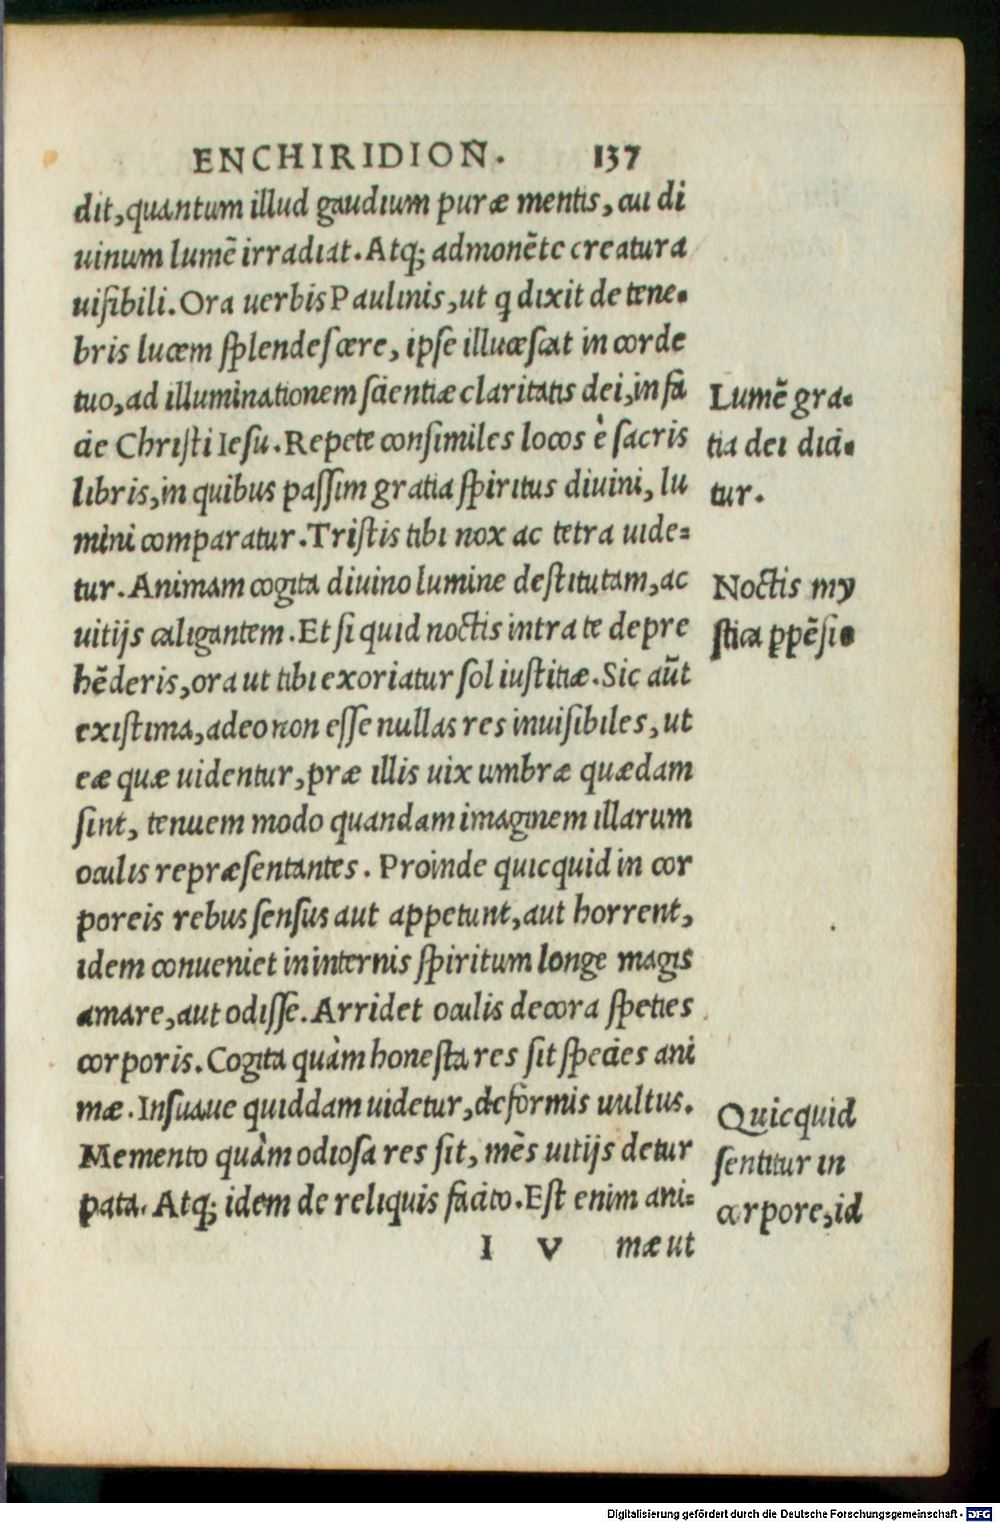 ENCHIRIDION. 137
dit, quantum illud gaudium puræ mentis, cui di
uinum lumē irradiat. Atq; admonēte creatura
uisibili. Ora uerbis Paulinis, ut q dixit de tene-
bris lucem splendescere, ipse illucescat in corde
tuo, ad illuminationem scientiæ claritatis dei, in fa
cie Christi Iesu. Repete consimiles locos è sacris
libris, in quibus passim gratia spiritus diuini, lu
mini comparatur. Tristis tibi nox ac tetra uide=
tur. Animam cogita diuino lumine destitutam, ac
uitijs caligantem. Et si quid noctis intra te depre
hēderis, ora ut tibi exoriatur sol iustitiæ. Sic aūt
existima, adeo non esse nullas res inuisibiles, ut
eæ quæ uidentur, præ illis uix umbræ quædam
sint, tenuem modo quandam imaginem illarum
oculis repræsentantes. Proinde quicquid in cor
poreis rebus sensus aut appetunt, aut horrent,
idem conueniet in internis spiritum longe magis
amare, aut odisse. Arridet oculis decora speties
corporis. Cogita quàm honesta res sit species ani
mæ. Insuaue quiddam uidetur, deformis uultus.
Memento quàm odiosa res sit, mēs uitijs detur
pata. Atq; idem de reliquis facito. Est enim ani=
I V mæ ut
Lumē gra-
tia dei dici-
tur.
Noctis my
stica ppēsi-
Quicquid
sentitur in
corpore, id
Digitalisierung gefördert durch die Deutsche Forschungsgemeinschaft - DFG